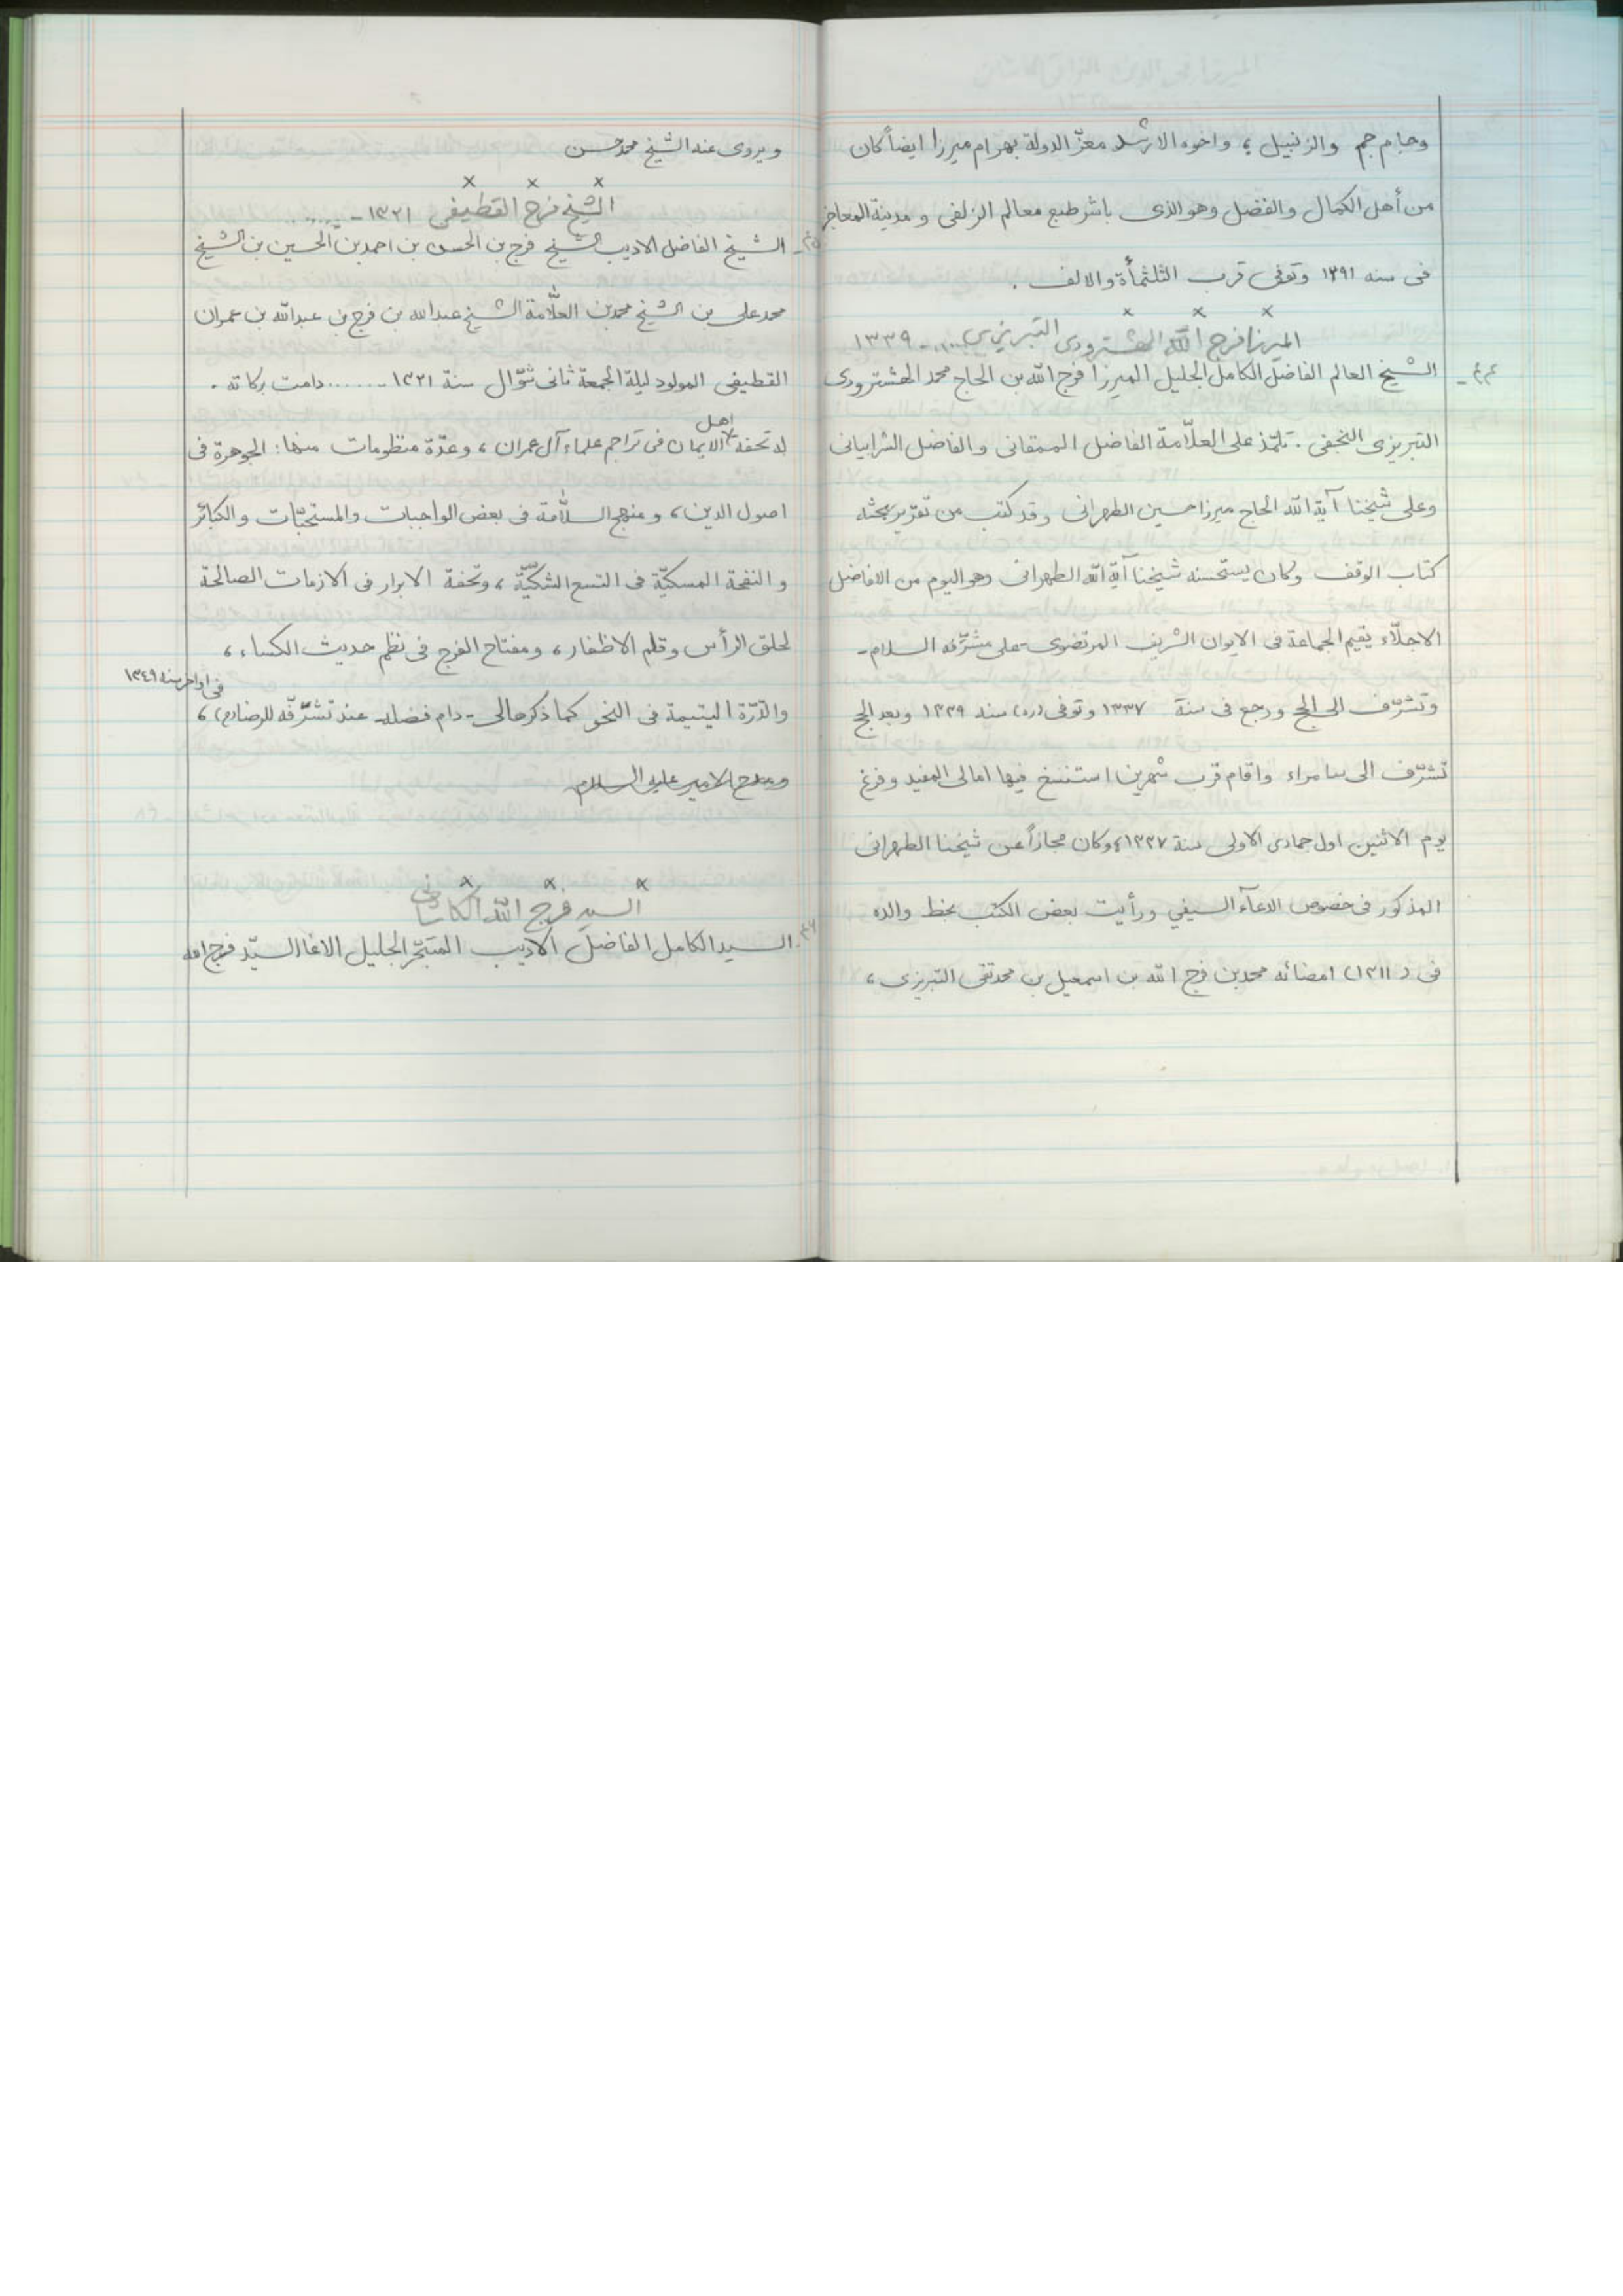 وجام جم والزنبيل ؛ واخوه الارشد معزّ الدولة بهرام ميرزا ايضاً كان
من أهل الكمال والفضل وهو الذى باشر طبع معالم الزلفى و مدينة المعاجز
فى سنه ١٢٩١ وتوفى قرب الثلثمأة والالف .
× × ×
الميرزا فرج الله الهشترودى التبريزي .... - ١٣٣٩
٤٤- الشيخ العالم الفاضل الكامل الجليل الميرزا فرج الله بن الحاج محمد الهشترودى
التبريزى النجفى . تلمّذ على العلّامة الفاضل الممقانى والفاضل الشرابيانى
وعلى شيخنا آية الله الحاج ميرزا حسين الطهرانى وقد كتب من تقرير بحثه
كتاب الوقف وكان يستحسنه شيخنا آية الله الطهرانى وهو اليوم من الافاضل
الاجلّاء يقيم الجماعة فى الايوان الشريف المرتضوى -على مشرّفه السلام-
وتشرّف الى الحج ورجع فى سنة ١٣٣٧ وتوفى (ره) سنه ١٣٣٩ وبعد الحج
تشرّف الى سامراء واقام قرب شهرين استنسخ فيها امالى المفيد وفرغ
يوم الاثنين اول جمادى الاولى سنة ١٣٣٧، وكان مجازاً عن شيخنا الطهرانى
المذكور فى خصوص الدعآء السيفي ورأيت بعض الكتب بخط والده
فى (١٣١١) امضائه محمد بن فرج الله بن اسمعيل بن محمد تقى التبريزى ،
ويروى عنه الشيخ محمد حسن
× × ×
الشيخ فرج القطيفى ١٣٢١ - ......
٤٥- الشيخ الفاضل الاديب الشيخ فرج بن الحسن بن احمد بن الحسين بن الشيخ
محمد على بن الشيخ محمد بن العلّامة الشيخ عبدالله بن فرج بن عبدالله بن عمران
القطيفى المولود ليلة الجمعة ثانى شوّال سنة ١٣٢١ - ...... دامت بركاته .
له تحفة اهل الايمان فى تراجم علماء آل عمران ، وعدّة منظومات منها : الجوهرة فى
اصول الدين ، و منهج السلّامة فى بعض الواجبات والمستحبّات والكبائر
و النفحة المسكيّة فى التسع الشكيّة ، وتحفة الابرار فى الازمات الصالحة
لحلق الرأس وقلم الاظفار ، ومفتاح الفرج فى نظم حديث الكساء ،
والدّرّة اليتيمة فى النحو كما ذكرها لى - دام فضله - عند تشرّفه للرضا (ع) ، فى اواخر سنه ١٣٤٩
ومدح الامير عليه السلام
× × ×
السيد فرج الله الكاشانى
٤٦. السيد الكامل الفاضل الاديب المتبحّر الجليل الاغا السيّد فرج الله